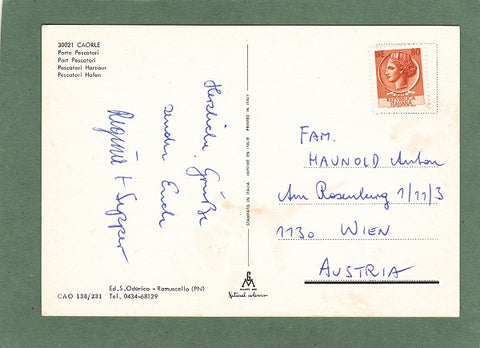 30021 CAORLE
Porto Pescatori
Port Pescatori
Pescatori Harbour
Pescatori Hafen
Herzliche Grüße
senden Euch
Regina + Sepper
STAMPATO IN ITALIA IMPRIMÉ EN ITALIE PRINTED IN ITALY
80
REPUBBLICA
ITALIANA
FAM.
HAUNOLD Anton
Am Rosenberg 1/11/3
1130 WIEN
AUSTRIA
CAO 138/231
Ed. S. Odorico - Ramuscello (PN)
Tel. 0434-68129
Natural colours